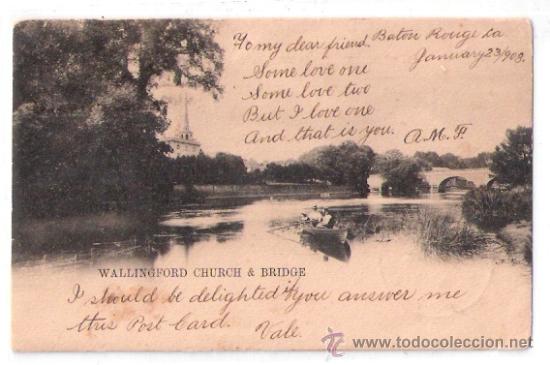 To my dear friend. Baton Rouge La
January 23/903.
Some love one
Some love two
But I love one
And that is you. A.M.F.
WALLINGFORD CHURCH & BRIDGE
I should be delighted if you answer me
this Post Card. Vale.
todocoleccion.net